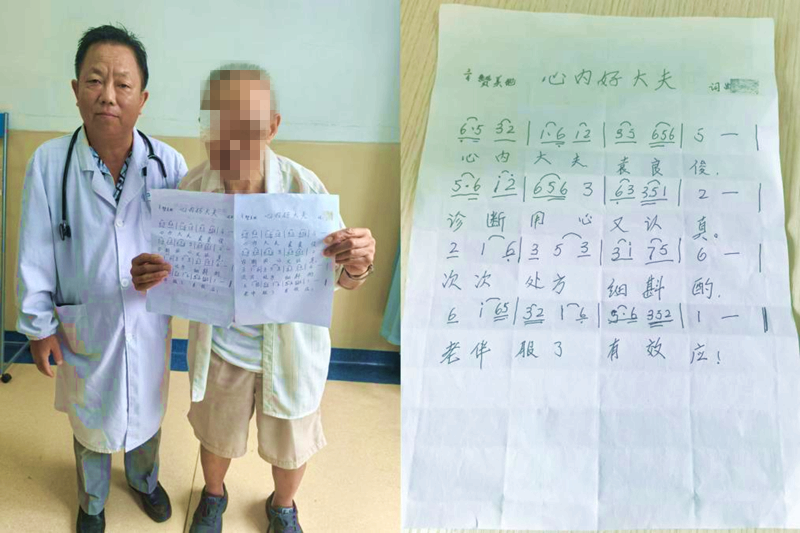 心内好大夫
赞美曲 心内好大夫 词
6·5 32 | 1·6 12 | 35 656 | 5 — |
心内大夫袁良俊,
5·6 i2 | 656 3 | 63 351 | 2 — |
诊断用心又认真。
2 1 6 | 3 5 3 | 3i 75 | 6 — |
次次处方细斟酌,
6 i 65 | 32 1 6 | 5·6 352 | 1 — |
老伴服了有效应!